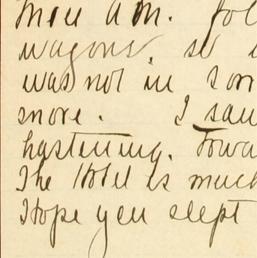 wagons. so
was not in
snore. I saw
hastening. Towa
The Hotel is much
Hope you slept